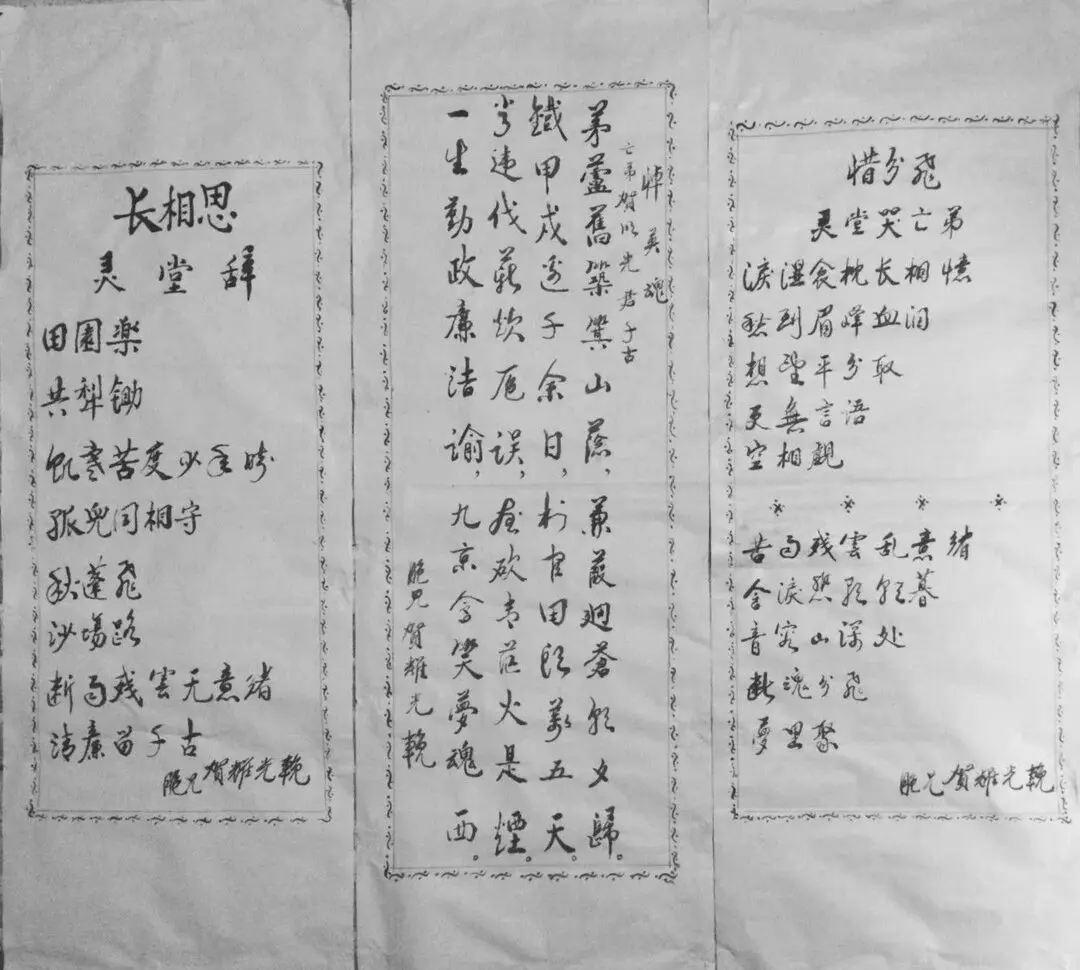 长相思
灵堂辞
田園樂
共犁锄
飢寒苦度少年時
孤兒同相守
秋蓬飛
沙場路
断雨残雲无意緒
清廉留千古
胞兄賀耀光輓
悼英魂
亡弟賀收光君千古
茅蘆舊築巽山蔭，兼葭廻蒼夕歸。
鐵甲戍邊千余日，村官田五天。
違伐薪炊厄误，砍青茫火是煙。
一生勤政廉洁谕，九京含笑夢魂西。
胞兄賀耀光輓
惜分飛
灵堂哭亡弟
淚湿食枕长相憶
愁到眉峰血泪
想望平分取
更無言语
空相觀
苦雨残雲乱意緒
含淚愁暮
音容山深处
断魂分飛
夢里聚
胞兄賀耀光輓